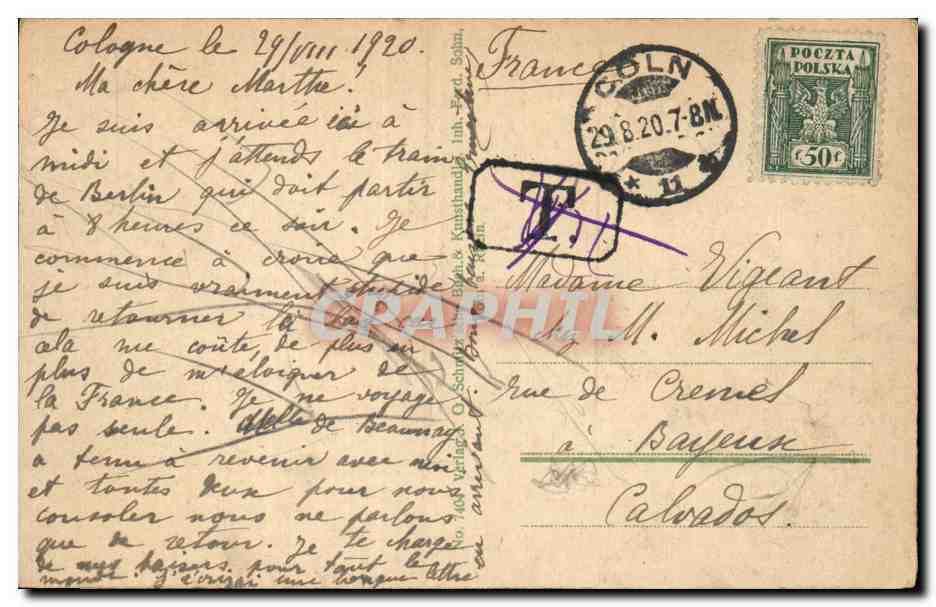 Cologne le 29/VIII 1920.
Ma chère Marthe!
Je suis arrivée ici à
midi et j'attends le train
de Berlin qui doit partir
à 8 heures ce soir. Je
commence à croire que
je suis vraiment stupide
de retourner là bas
cela me coûte de plus en
plus de m'éloigner de
la France. Je ne voyage
pas seule. Melle de Beaunay
a tenu à revenir avec moi
et toutes deux pour nous
consoler nous ne parlons
que de retour. Je te charge
de mes baisers pour tout le
monde. J'écrirai une longue lettre
en arrivant.
No. 7404 Verlag J. O. Schmitz Buch- & Kunsthandlg. Inh. Ferd. Sohn,
a. Rhein.
France
CÖLN
29.8.20.7-8N.
* 11
POCZTA
POLSKA
f 50 f
T
Madame Vigeant
M. Michel
rue de Cremel
à Bayeux
Calvados.
CPAPHIL